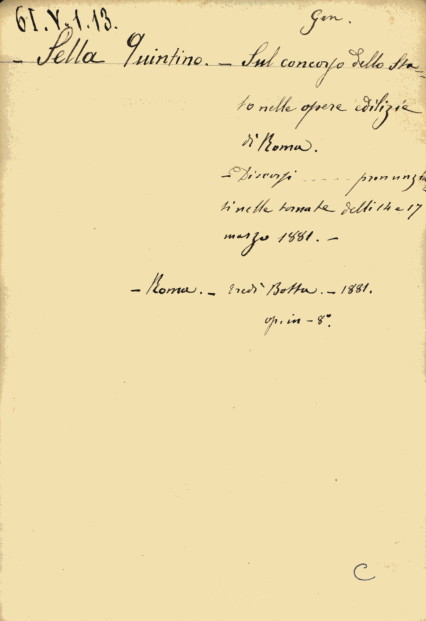 61.V.1.13.
Gen.
- Sella Quintino. - Sul concorso dello Sta-
to nelle opere edilizie
di Roma.
- Discorsi ..... pronunzia
ti nelle tornate delli 14 e 17
marzo 1881. -
- Roma. - Eredi Botta. - 1881.
op. in - 8°.
C